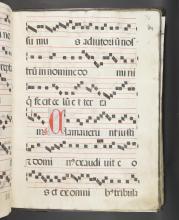 su mu s adiutoriū nos
trū in nomine do mini
q̄ fecit ce lū et ter ra
ms Clamaverūt iusti
et domi n⁹ exaudi uit e o
s et ex omni b⁹ tribula